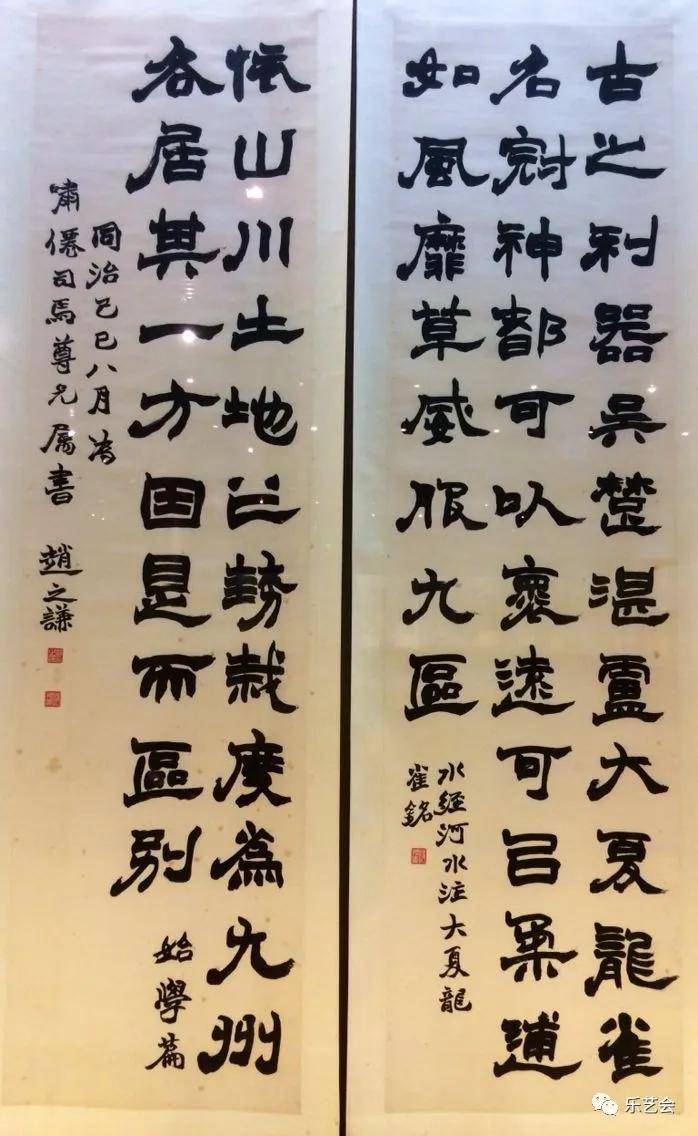 古之利器吳楚湛盧大夏龍雀
名冠神都可以褱遠可㠯柔逋
如風靡草威服九區
水經河水注大夏龍
雀銘
依山川土地之勢裁度爲九州
各居其一方因是而區別
始學篇
同治己巳八月為
嘯僊司馬尊兄屬書 趙之謙
乐艺会